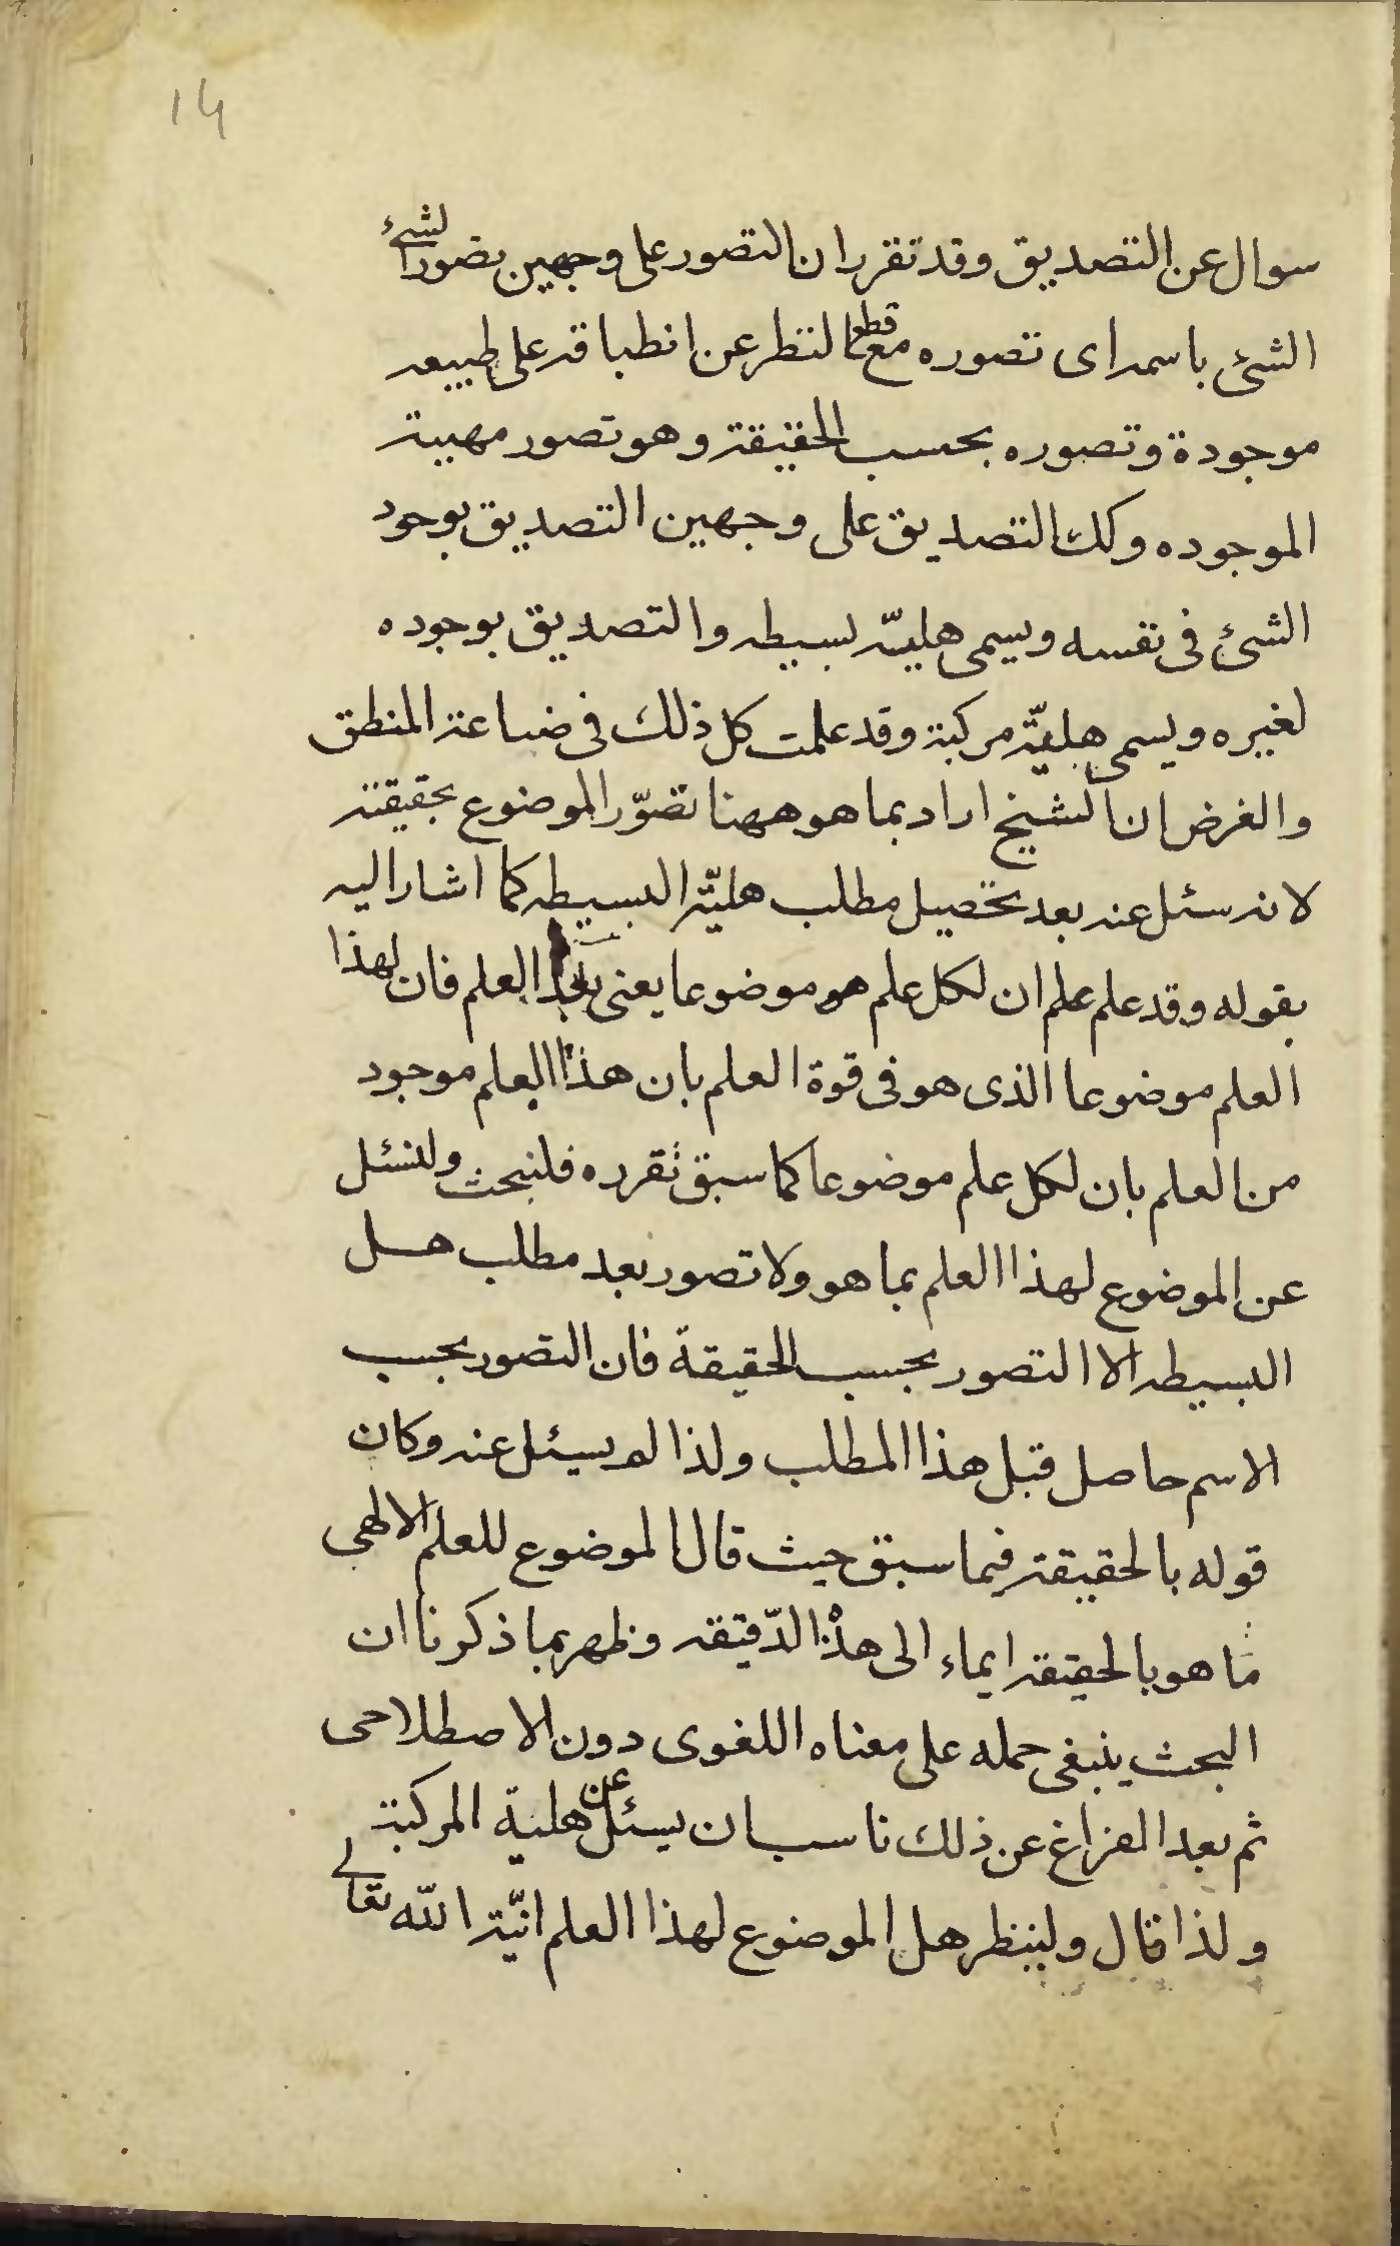 14
سوال عن التصديق وقد تقرر ان التصور على وجهين تصور الشئ
الشئ باسمه اى تصوره مع قطع النظر عن انطباقه على طبيعه
موجودة وتصوره بحسب الحقيقة وهو تصور مهيية
الموجوده وكك التصديق على وجهين التصديق بوجود
الشئ فى نفسه ويسمى هليه بسيطه والتصديق بوجوده
لغيره ويسمى هليّة مركبة وقد علمت كل ذلك فى صناعة المنطق
والغرض ان الشيخ اراد بما هو ههنا تصوّر الموضوع بحقيقته
لانه سئل عنه بعد تحصيل مطلب هليّة البسيطه كما اشار اليه
بقوله وقد علم علم ان لكل علم هو موضوعا يعنى العلم فان لهذا
العلم موضوعا الذى هو فى قوة العلم بان هذا العلم موجود
من العلم بان لكل علم موضوعا كما سبق تقرده فلنبحث ولنسئل
عن الموضوع لهذا العلم بما هو ولا تصور بعد مطلب هل
البسيطه الا التصور بحسب الحقيقة فان التصور بحسب
الاسم حاصل قبل هذا المطلب ولذا لم يسئل عنه وكان
قوله بالحقيقة فيما سبق حيث قال الموضوع للعلم الالهى
ما هو بالحقيقه ايماء الى هذا الدّقيقه وظهر بما ذكرنا ان
البحث ينبغى حمله على معناه اللغوى دون الاصطلاحى
ثم بعد الفراغ عن ذلك ناسب ان يسئل عن هلية المركبة
ولذا قال ولينظر هل الموضوع لهذا العلم انيّة الله تعالى